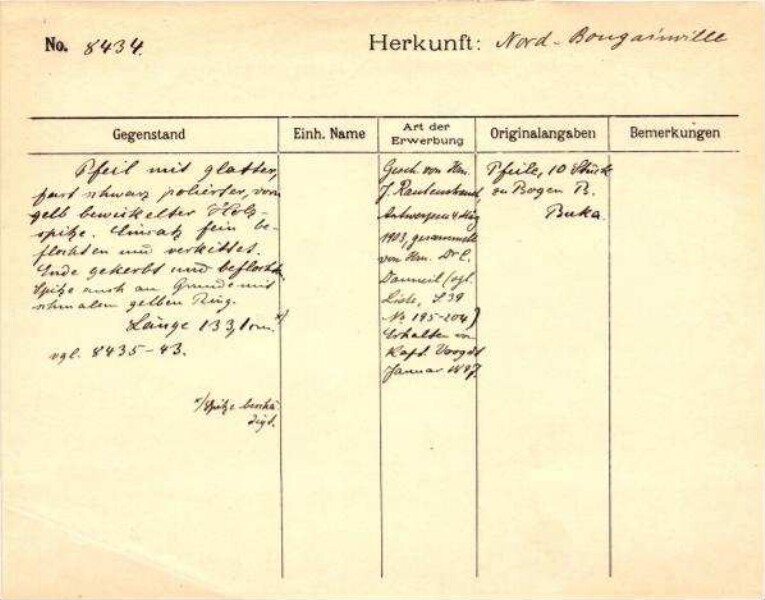 No. 8434.
Herkunft: Nord-Bougainville
Gegenstand
Einh. Name
Art der Erwerbung
Originalangaben
Bemerkungen
Pfeil mit glatter,
fast schwarz polierter, vorn
gelb bewickelter Holz-
spitze. Einsatz fein be-
flochten und verkittet.
Ende gekerbt und beflochten.
Spitze auch am Grunde mit
schmalen gelben Ring.
Länge 133,1 cm. */
vgl. 8435-43.
*/ Spitze beschä-
digt.
Gesch. von Hrn.
J. Rautenstrauch,
Antwerpen 4 May
1903, gesammelt
von Hrn. Dr C.
Danneil (vgl.
Liste, S 39
No 195-204)
Erhalten von
Kapt. Voogdt
Januar 1897.
Pfeile, 10 Stück
zu Bogen B.
Buka.